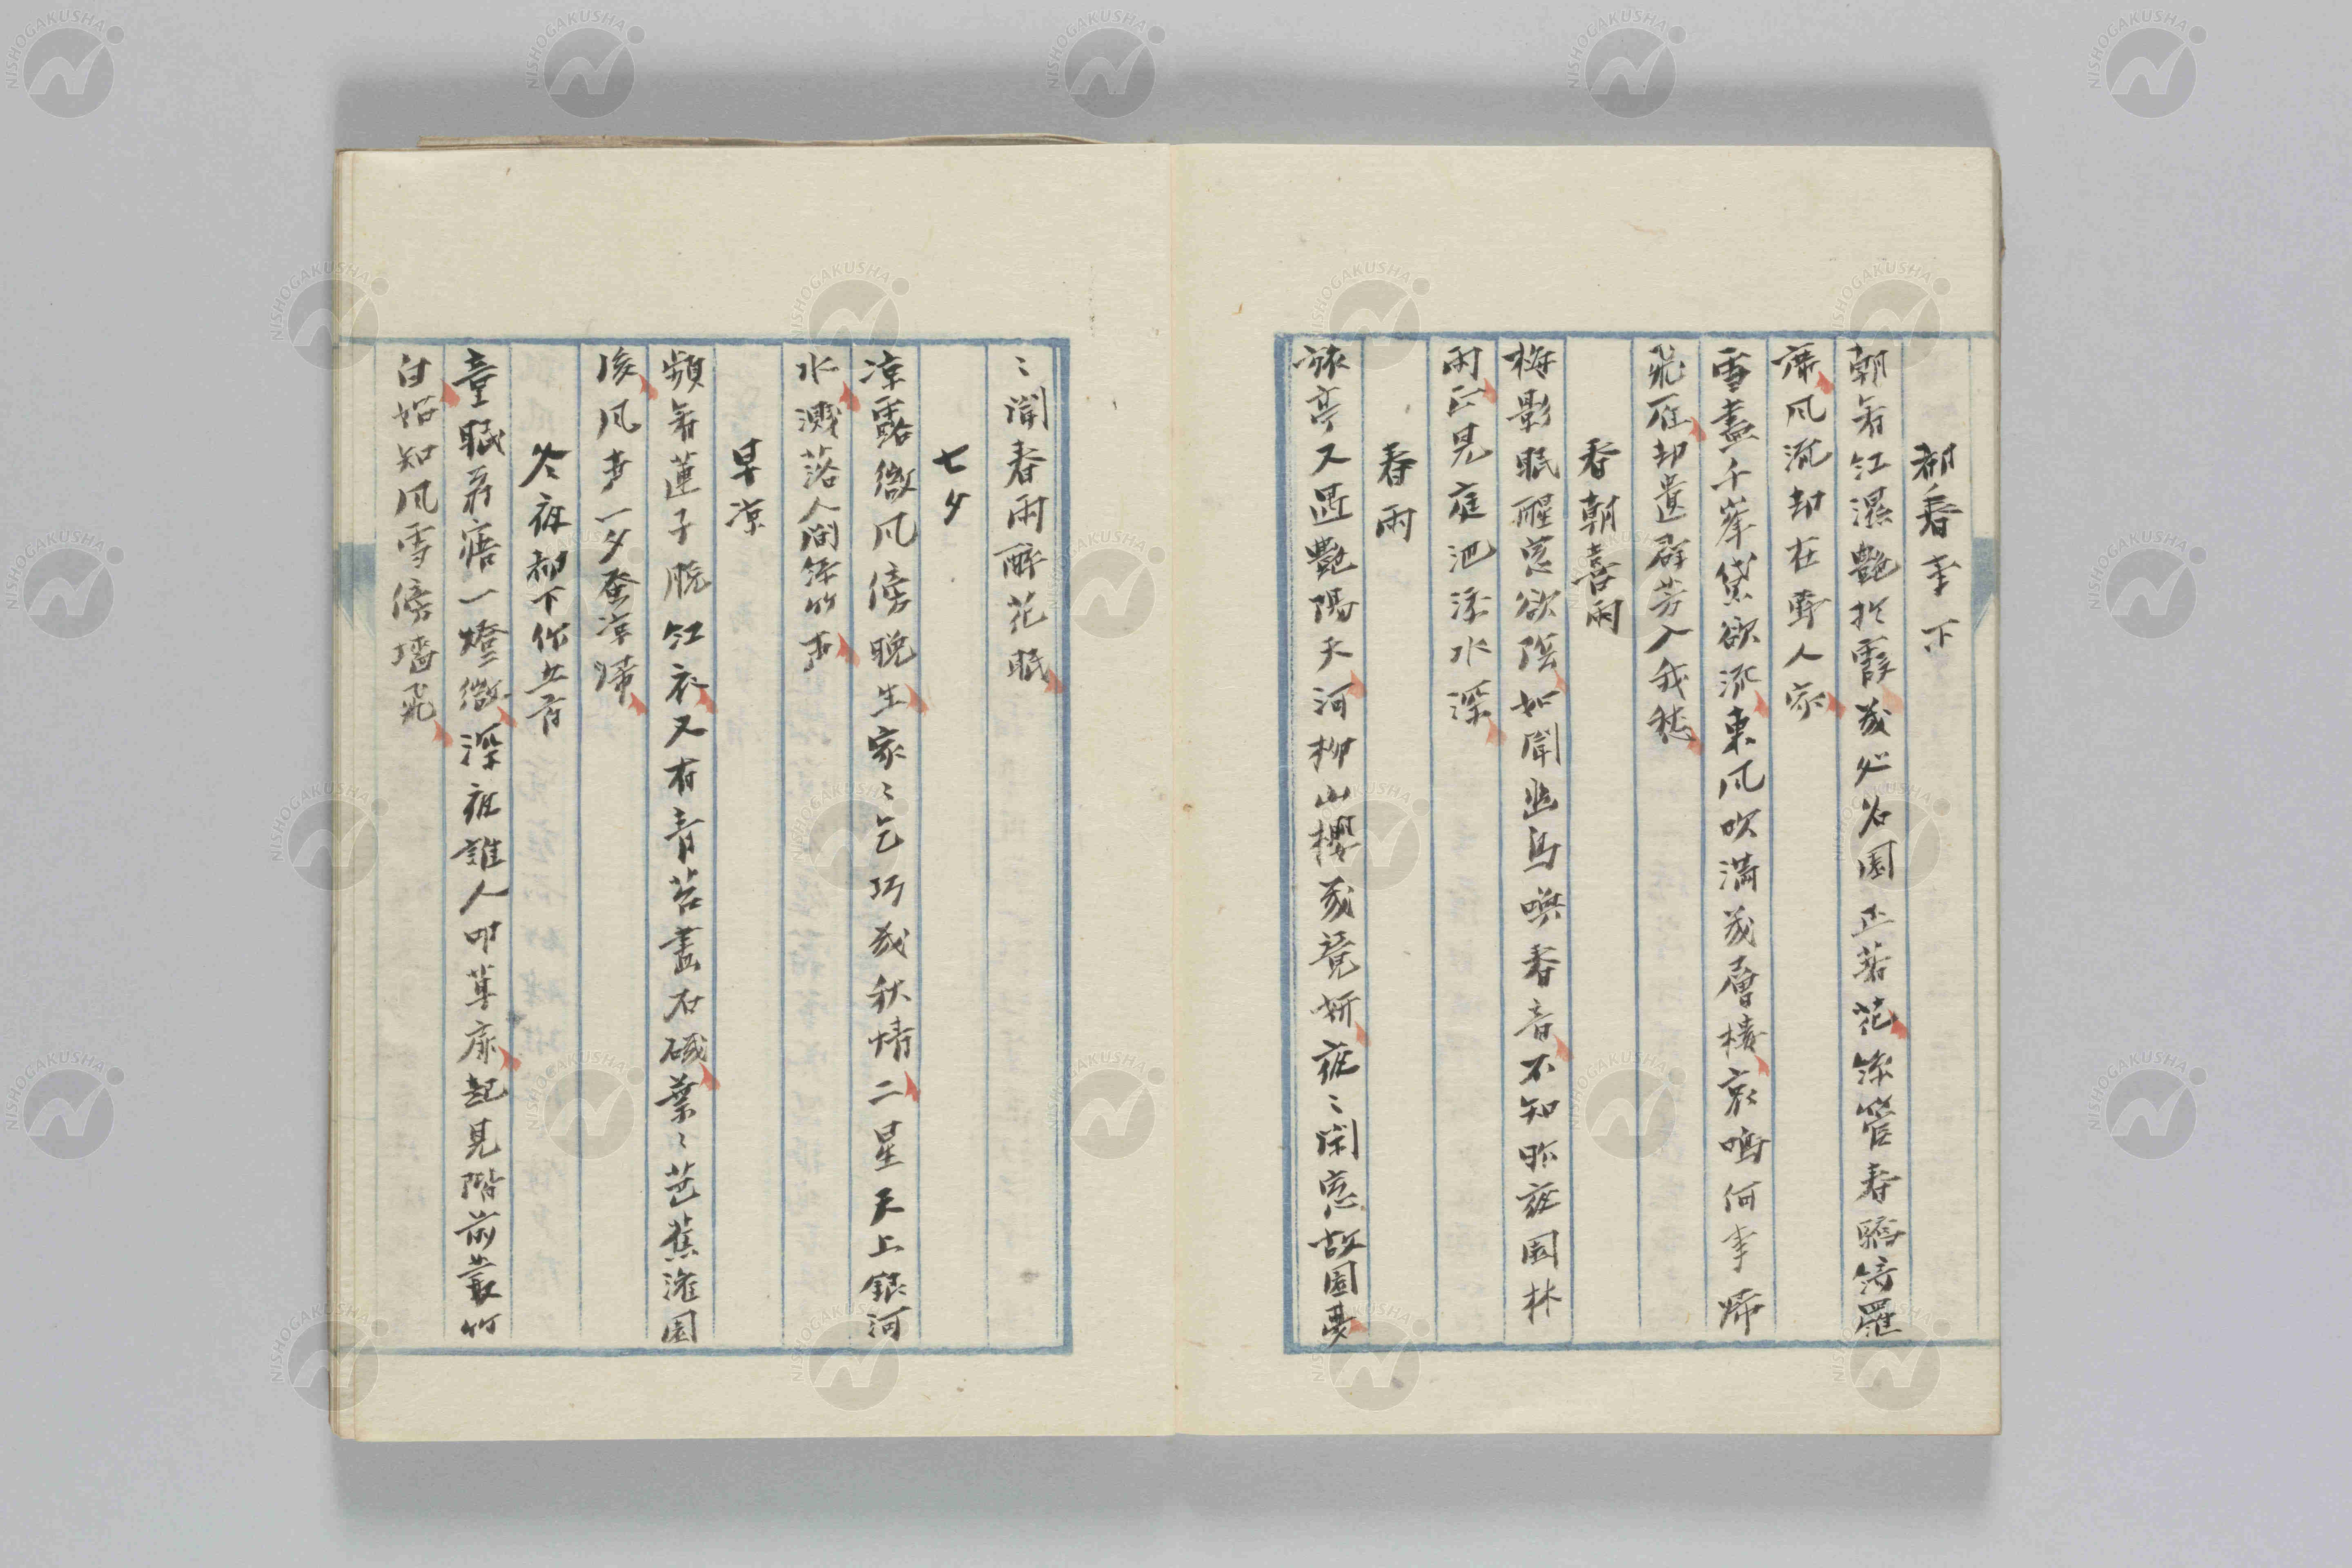 都春事下
朝看紅濕艷於霞幾処名園正着花絲管春驕綺羅
席風流却在野人家
雪盡千峯黛欲流東風吹滿幾層樓哀鳴何事帰
飛雁却遺群芳入我愁
春朝喜雨
梅影眠醒窓欲陰如聞幽鳥喚春音不知昨夜園林
雨正見庭池添水深
春雨
旅亭又遇艷陽天河柳山櫻幾競妍夜〻閑窓故園夢
〻聞春雨酔花眠
七夕
涼露微風傍晩生家〻乞巧幾秋情二星天上銀河
水濺落人間絲竹声
早涼
頻看蓮子脱紅衣又有青苔畫石磯葉〻芭蕉滝園
後風声一夕蚤涼帰
冬夜都下作五首
童眠君寤一燈微深夜誰人叩草扉起見階前叢竹
白始知風雪傍墻飛
NISHOGAKUSHA